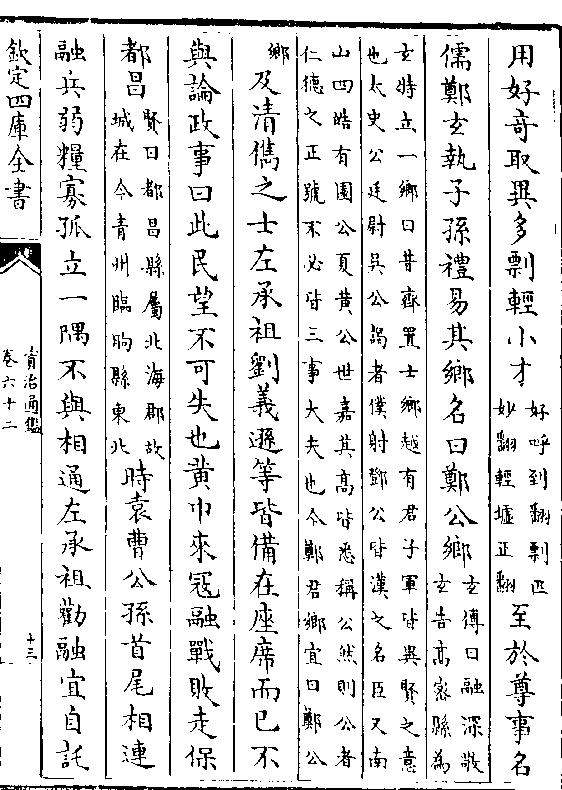 用好竒取異多剽輕小才
好呼到翻剽匹
妙翻輕墟正翻
至於尊事名
儒鄭玄執子孫禮易其鄉名曰鄭公鄉
玄傳曰融深敬
玄告髙密縣為
玄特立一鄉曰昔齊置士鄉越有君子軍皆異賢之意
也太史公廷尉吳公謁者僕射鄧公皆漢之名臣又南
山四皓有園公夏黄公世嘉其髙皆悉稱公然則公者
仁德之正號不必皆三事大夫也今鄭君鄉宜曰鄭公
鄉
及清儁之士左承祖劉義遜等皆備在座席而已不
與論政事曰此民望不可失也黄巾來寇融戰敗走保
都昌
賢曰都昌縣屬北海郡故
城在今青州臨朐縣東北
時袁曹公孫首尾相連
融兵弱糧寡孤立一隅不與相通左承祖勸融宜自託
欽定四庫全書
資治通鑑
卷六十二
十三